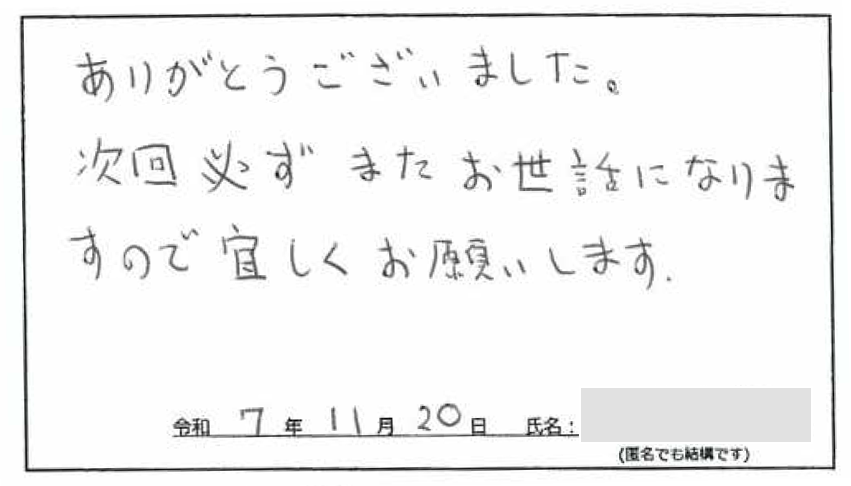 ありがとうございました。
次回必ずまたお世話になりま
すので宜しくお願いします.
令和 7 年 11 月 20 日 氏名：
(匿名でも結構です)